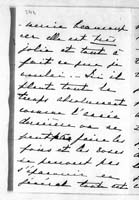 merie beaucoup
car elle est très
jolie et tout à
fait ce que je
voulais. Ici il
pleut tout le
temps absolument
comme l'année
dernière on ne
peut pas
pins et les roses
ne peuvent pas
s'épanouir en
général tout est